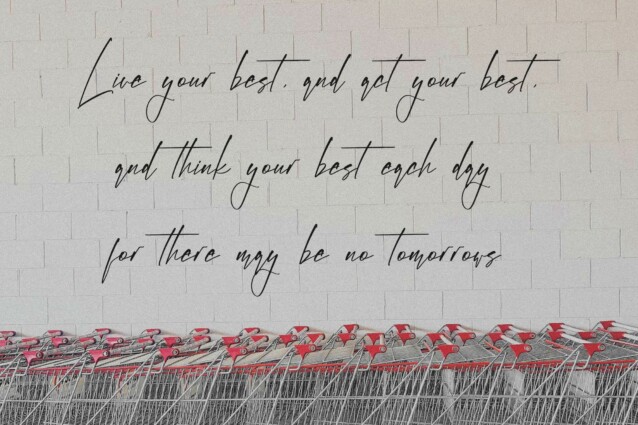 Live your best, and act your best,
and think your best each day
for there may be no tomorrows